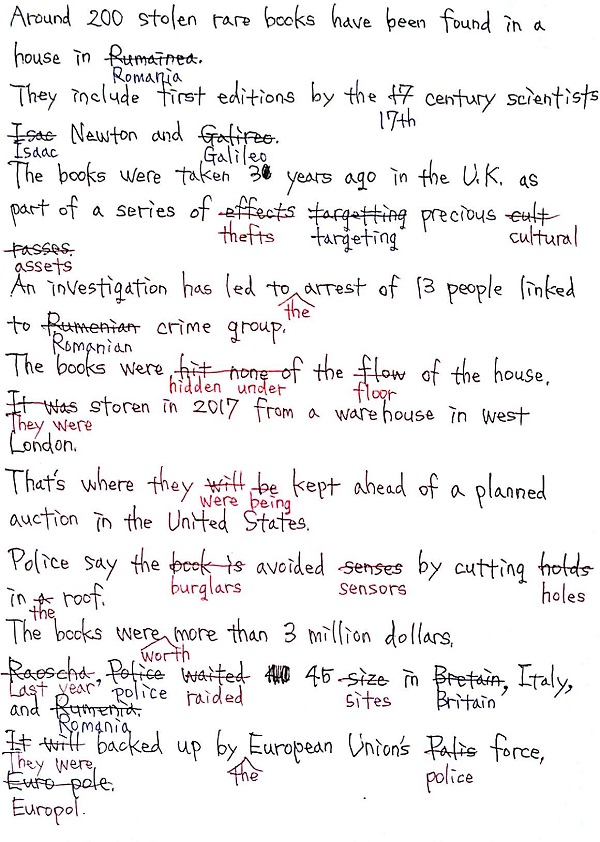 Around 200 stolen rare books have been found in a
house in Rumainea.
Romania
They include first editions by the 17 century scientists
17th
Isac Newton and Galireo.
Isaac Galileo
The books were taken 3 years ago in the U.K. as
part of a series of effects targetting precious cult
thefts targeting cultural
rasses.
assets
An investigation has led to arrest of 13 people linked
the
to Rumenian crime group.
Romanian
The books were hit none of the flow of the house.
hidden under floor
It was storen in 2017 from a warehouse in west
They were
London.
That's where they will be kept ahead of a planned
were being
auction in the United States.
Police say the book is avoided senses by cutting holds
burglars sensors holes
in a roof.
the
The books were more than 3 million dollars.
worth
Raoscha, Police waited 45 size in Bretain, Italy,
Last year, police raided sites Britain
and Rumenia.
Romania
It will backed up by European Union's Palis force,
They were the police
Euro pole.
Europol.